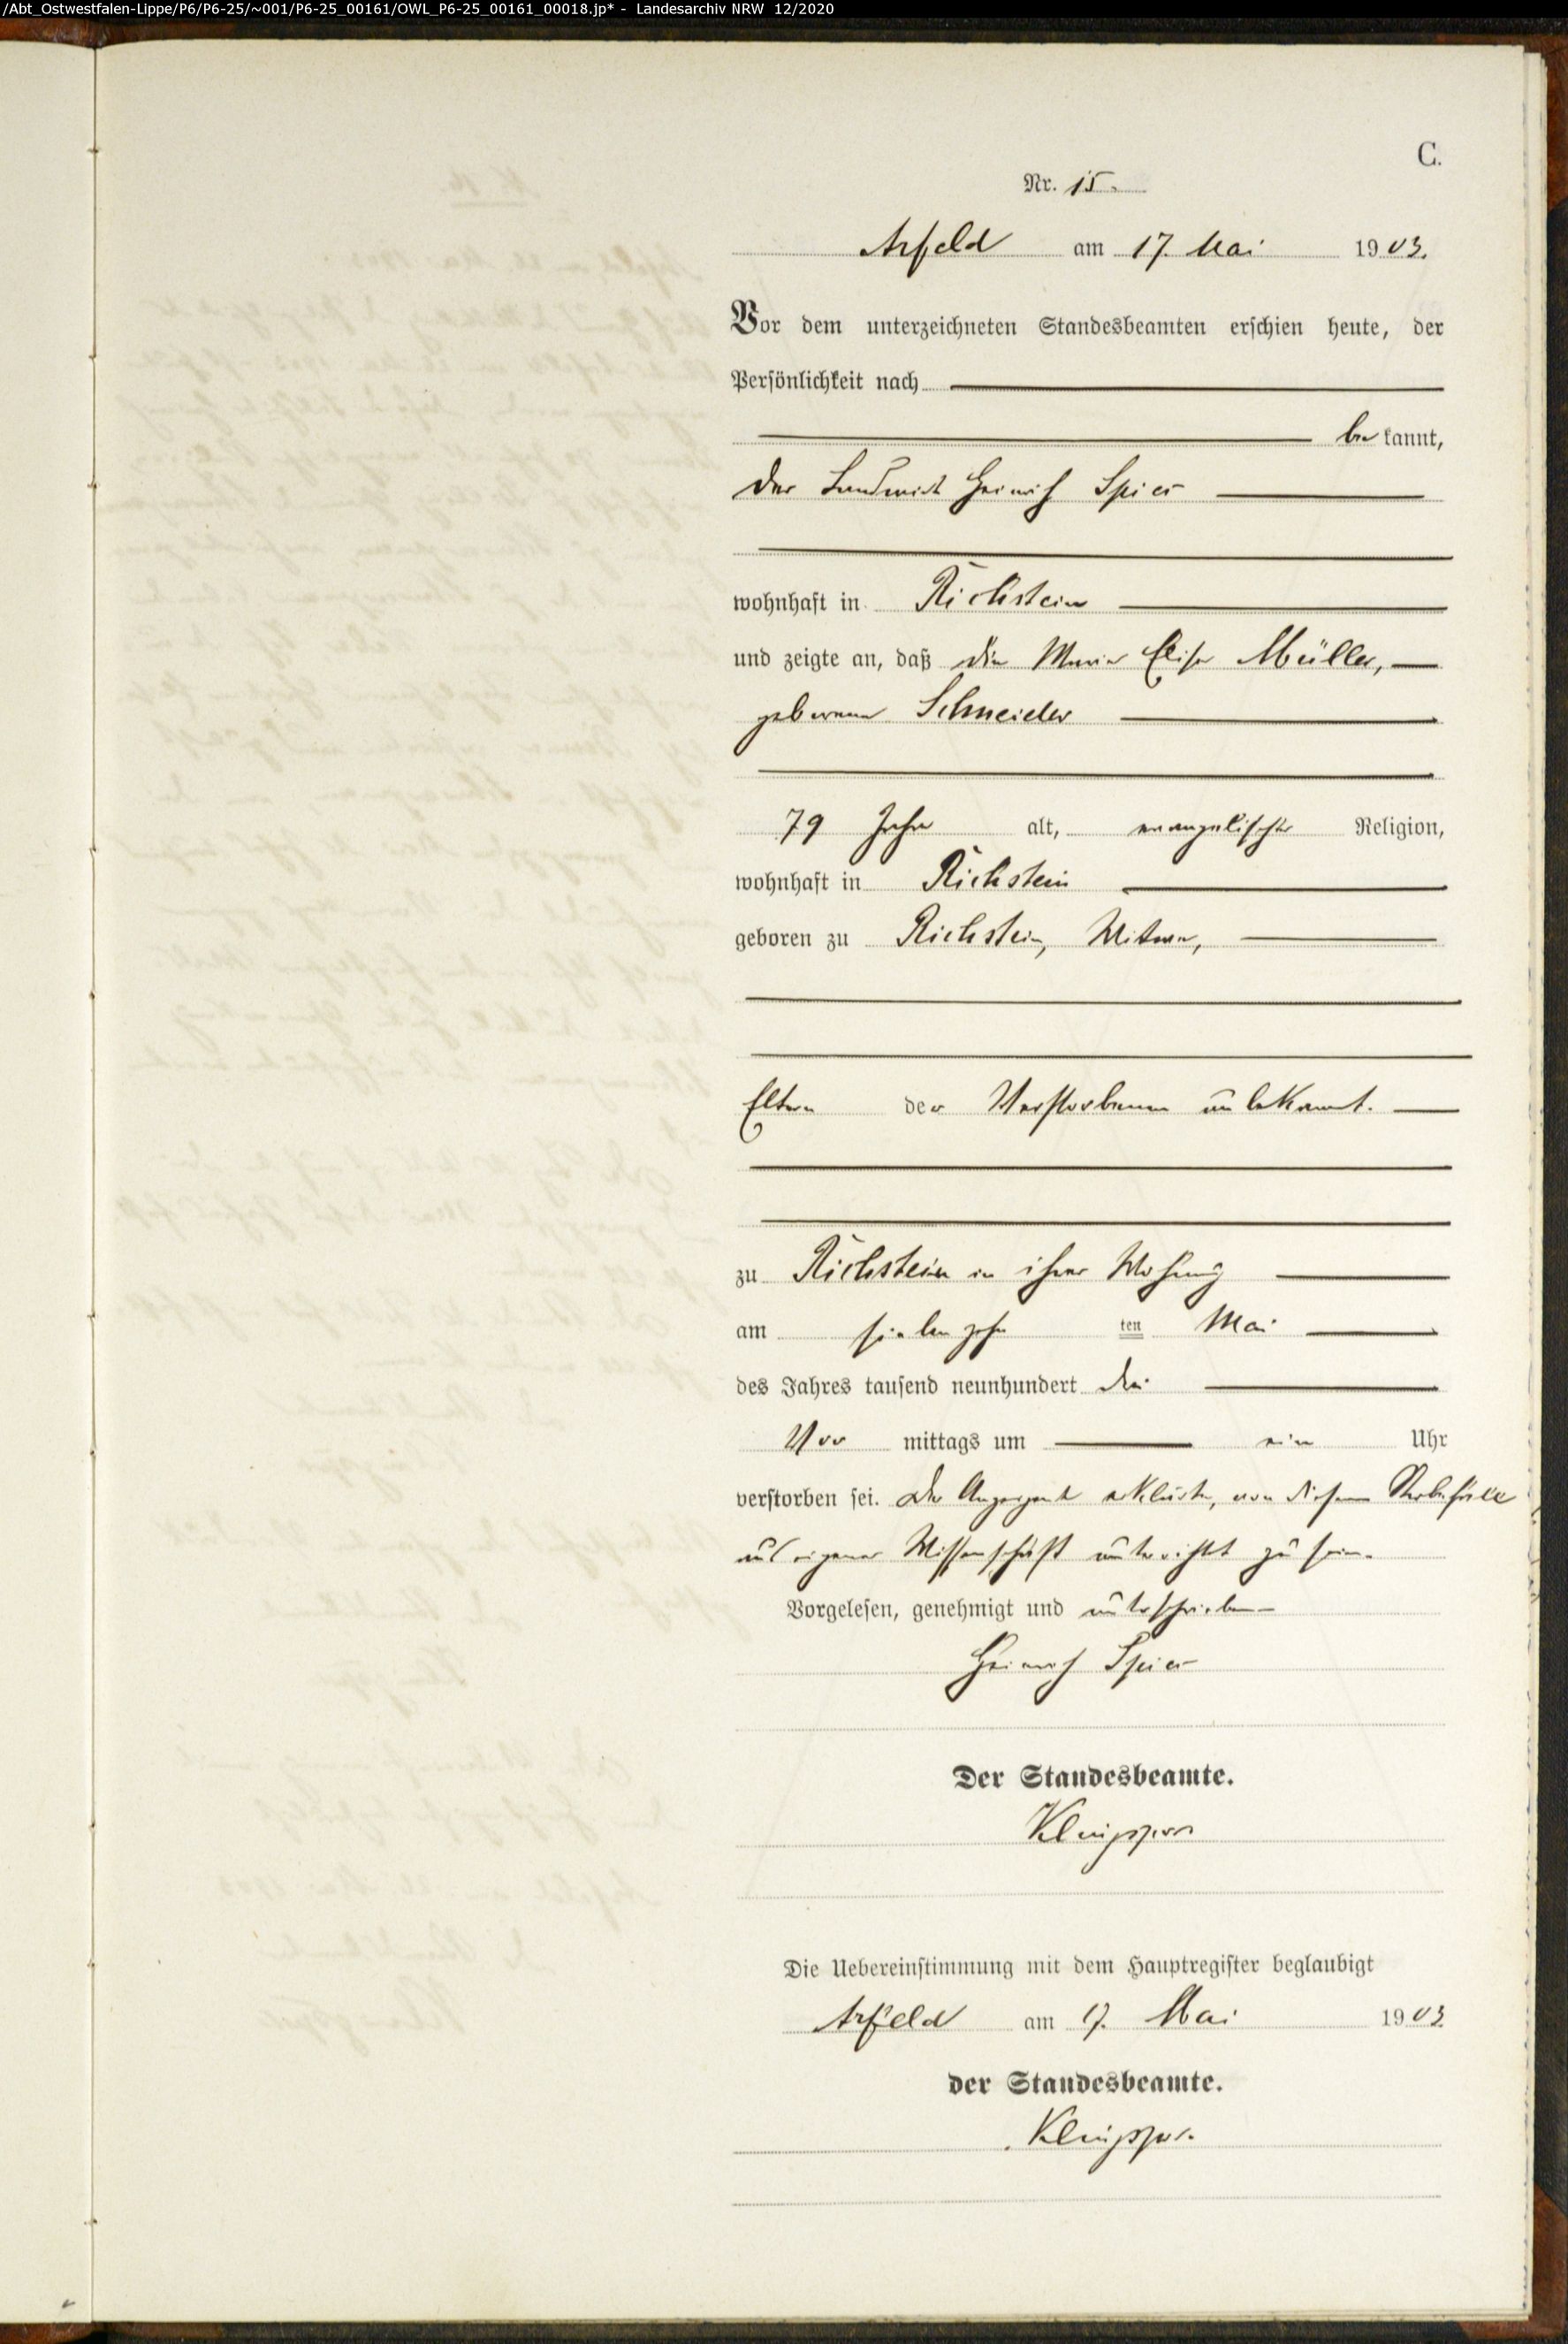 /Abt_Ostwestfalen-Lippe/P6/P6-25/~001/P6-25_00161/OWL_P6-25_00161_00018.jp* - Landesarchiv NRW 12/2020
C.
Nr. 15.
Arfeld am 17. Mai 1903.
Vor dem unterzeichneten Standesbeamten erschien heute, der
Persönlichkeit nach
bekannt,
der Landwirt Heinrich Spies
wohnhaft in Richstein
und zeigte an, daß die Marie Elise Müller,
geborene Schneider
79 Jahre alt, evangelischer Religion,
wohnhaft in Richstein
geboren zu Richstein, Witwe,
Eltern der Verstorbenen unbekannt.
zu Richstein in ihrer Wohnung
am siebenzehnten Mai
des Jahres tausend neunhundert drei
Vor mittags um ein Uhr
verstorben sei. Der Anzeigende erklärte, von diesem Sterbefalle
aus eigener Wissenschaft unterrichtet zu sein.
Vorgelesen, genehmigt und unterschrieben
Heinrich Spies
Der Standesbeamte.
Die Uebereinstimmung mit dem Hauptregister beglaubigt
Arfeld am 17. Mai 1903
der Standesbeamte.